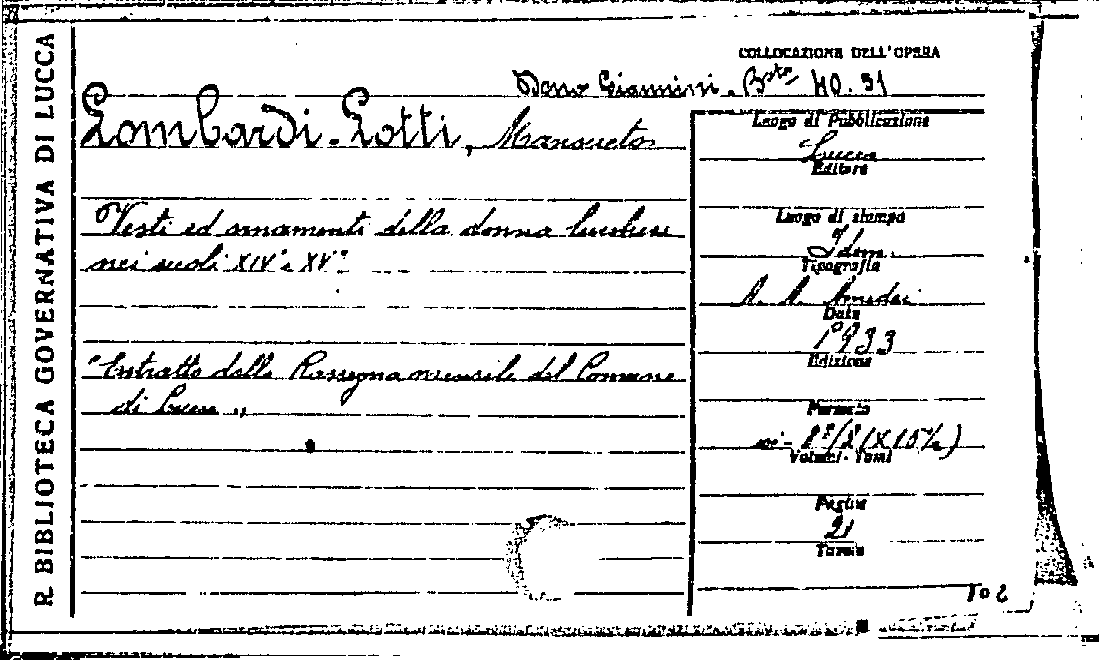 R. BIBLIOTECA GOVERNATIVA DI LUCCA
COLLOCAZIONE DELL'OPERA
Dono Giannini. Bsta 40. 31
Lombardi-Lotti, Mansueto
Vesti ed ornamenti della donna lucchese
nei secoli XIV e XV
"Estratto dalla Rassegna mensile del Comune
di Lucca"
Luogo di Pubblicazione
Lucca
Editore
Luogo di stampa
Idem
Tipografia
Amedei
Data
1933
Edizione
Formato
Volumi - Tomi
Pagine
21
Tavole